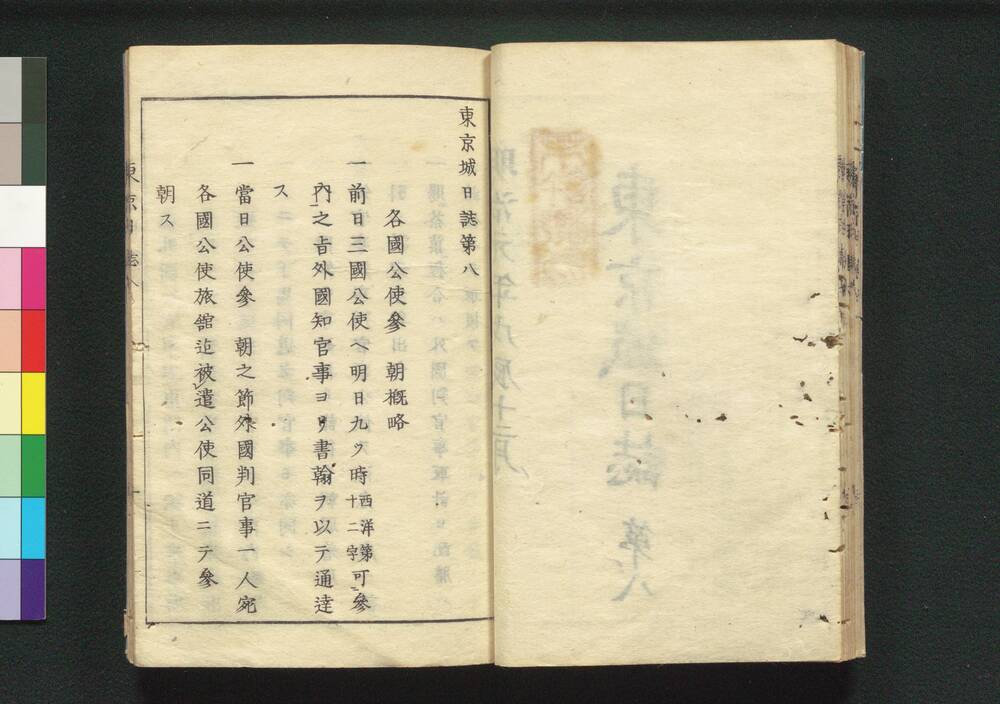 東京城日誌第八
各國公使參　朝概略
一前日三國公使ヘ明日九ツ時西洋第十二字可參
內之旨外國知官事ヨリ書翰ヲ以テ通達
ス
一當日公使參　朝之節外國判官事一人宛
各國公使旅舘迄被遣公使同道ニテ參
朝ス